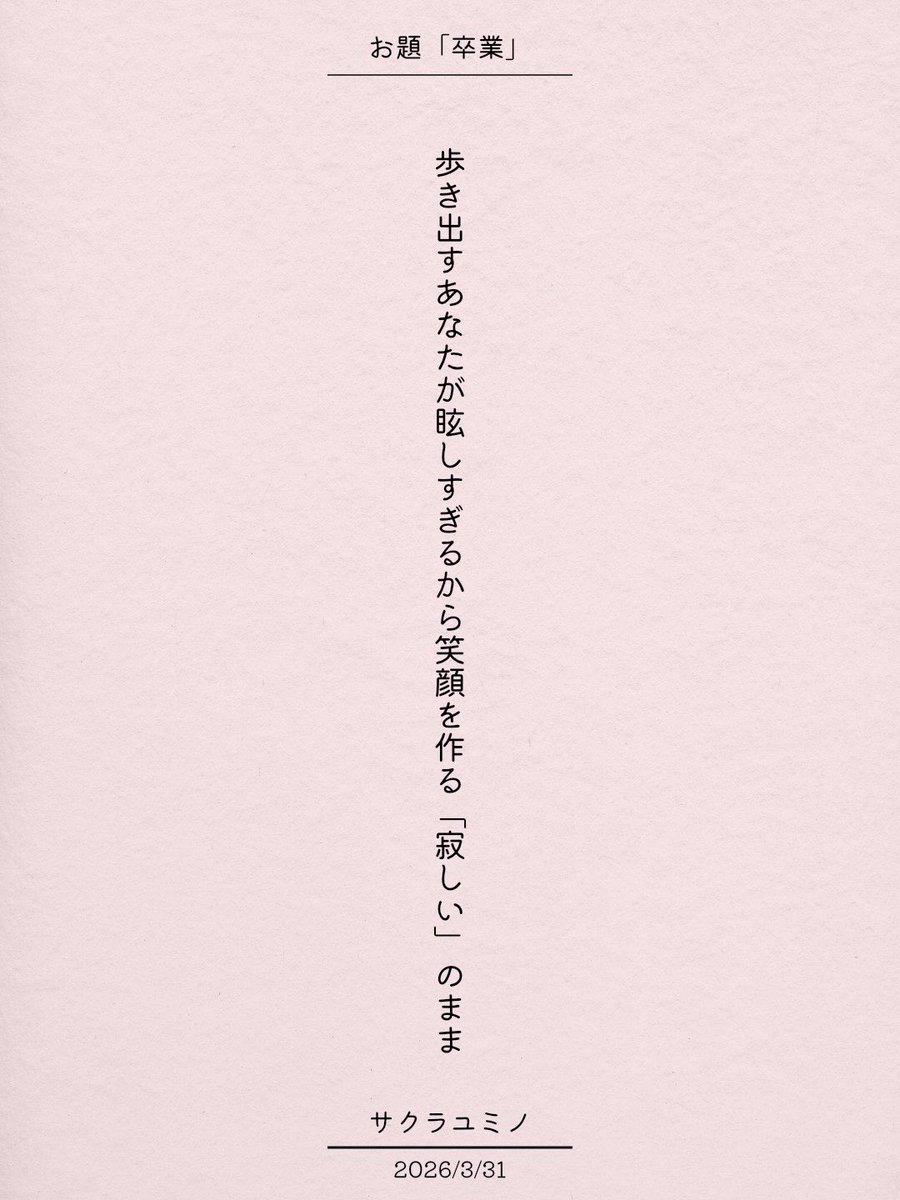 お題「卒業」
歩き出すあなたが眩しすぎるから笑顔を作る「寂しい」のまま
サクラユミノ
2026/3/31